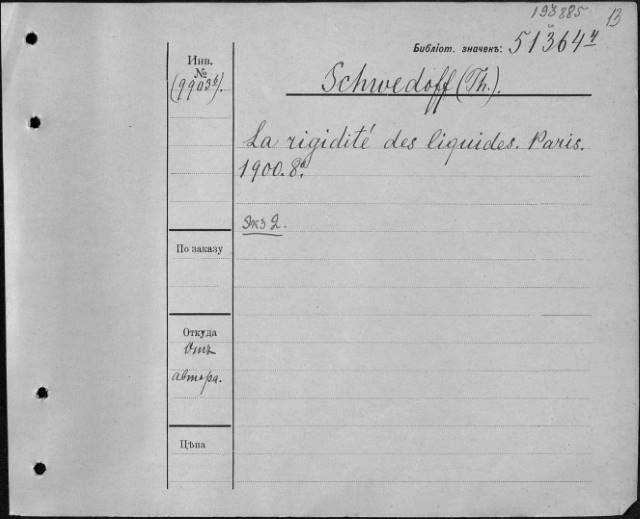 193885
13
Библіот. значекъ: 51364ч
Инв.
№
(9903б).
Schwedoff (Th.).
La rigidité des liquides. Paris.
1900. 8º.
Экз 2.
По заказу
Откуда
Отъ
автора.
Цѣна